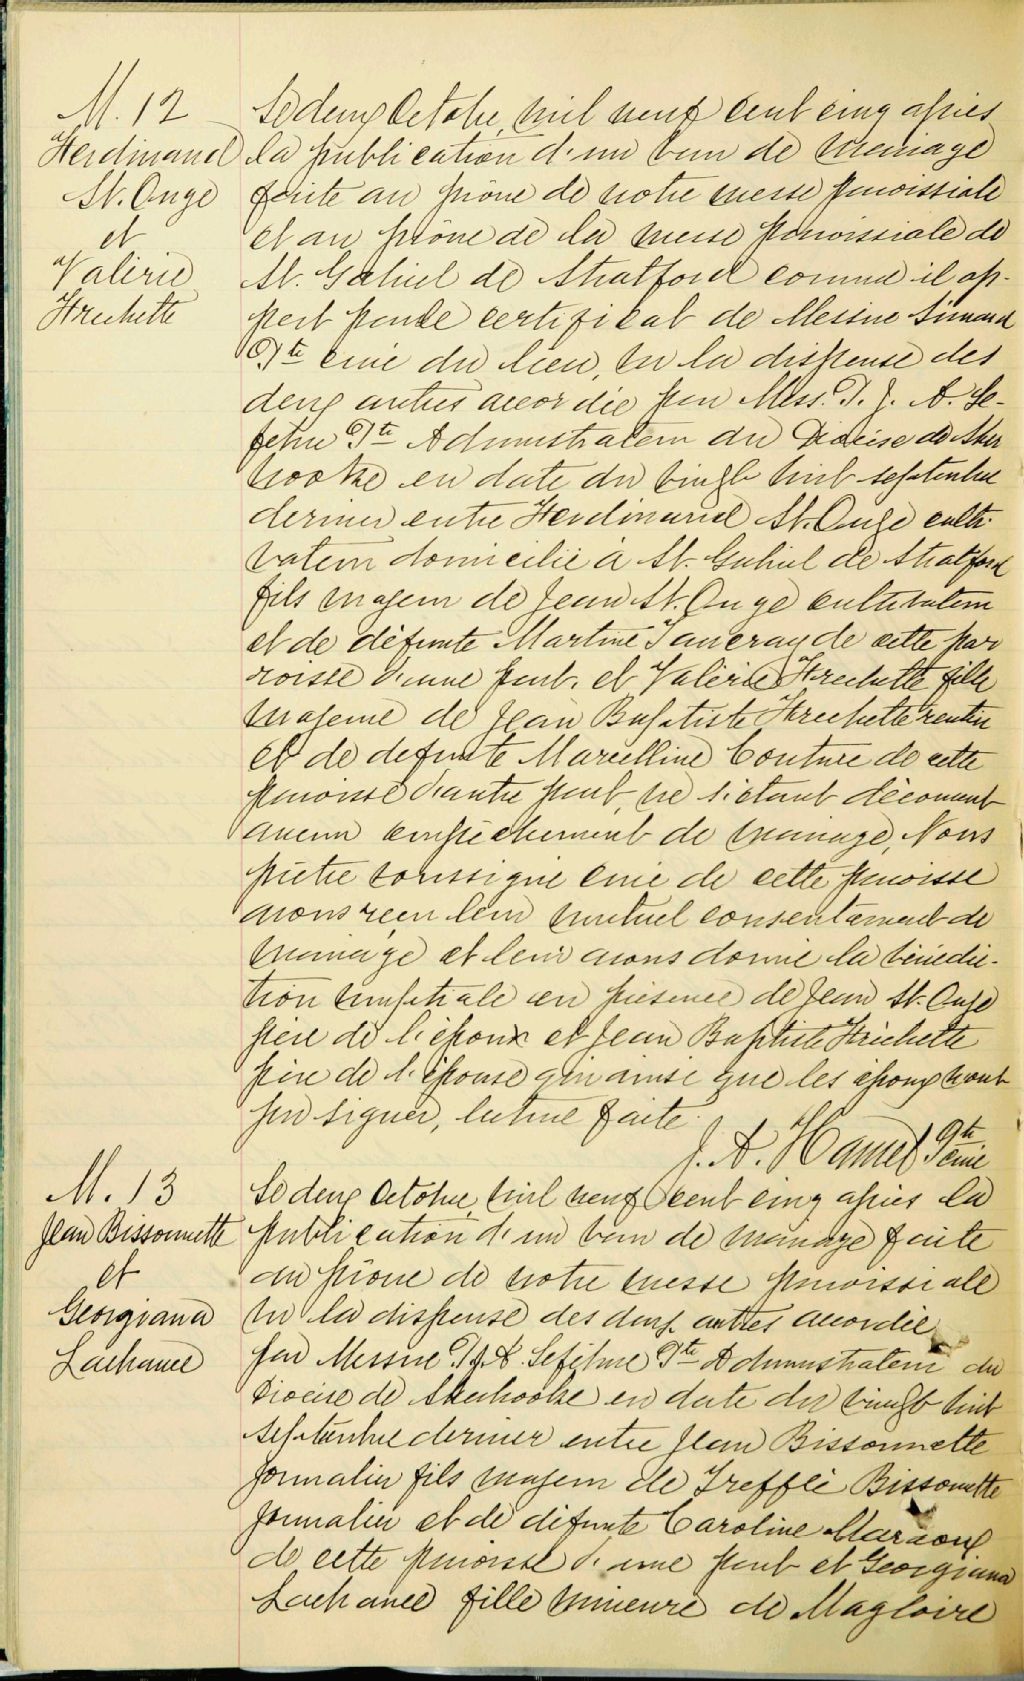 M. 12
Ferdinand
St. Onge
et
Valérie
Frechette
Le deux Octobre, mil neuf cent cinq après
la publication d'un ban de mariage
faite au prône de notre messe paroissiale
et au prône de la messe paroissiale de
St. Gabriel de Stratford comme il ap-
pert par le certificat de Messire Simard
Ptre curé du lieu, vu la dispense des
deux autres accordée par Mess. P. J. A. Le-
febvre Ptre Administrateur du Diocèse de Sher
brooke en date du vingt huit septembre
dernier entre Ferdinand St. Onge culti-
vateur domicilié à St. Gabriel de Stratford
fils majeur de Jean St. Onge cultivateur
et de défunte Martine Tancray de cette par
roisse d'une part, et Valérie Frechette fille
majeure de Jean Baptiste Frechette rentier
et de defunte Marcelline Couture de cette
paroisse d'autre part, ne s'étant découvert
aucun empêchement de mariage, Nous
prêtre soussigné curé de cette paroisse
avons reçu leur mutuel consentement de
mariage et leur avons donné la bénédic-
tion nuptiale en présence de Jean St. Onge
père de l'époux et Jean Baptiste Fréchette
père de l'épouse qui ainsi que les époux n'ont
pu signer, lecture faite.
J. A. Hamel Ptre
curé
M. 13
Jean Bissonnette
et
Georgiana
Lachance
Le deux Octobre, mil neuf cent cinq après la
publication d'un ban de mariage faite
au prône de notre messe paroissiale
vu la dispense des deux autres accordée
par Messire P. J. A. Lefebvre Ptre Administrateur du
Diocèse de Sherbrooke en date du vingt huit
septembre dernier entre Jean Bissonnette
journalier fils majeur de Treffle Bissonnette
journalier et de défunte Caroline
de cette paroisse d'une part et Georgiana
Lachance fille mineure de Magloire